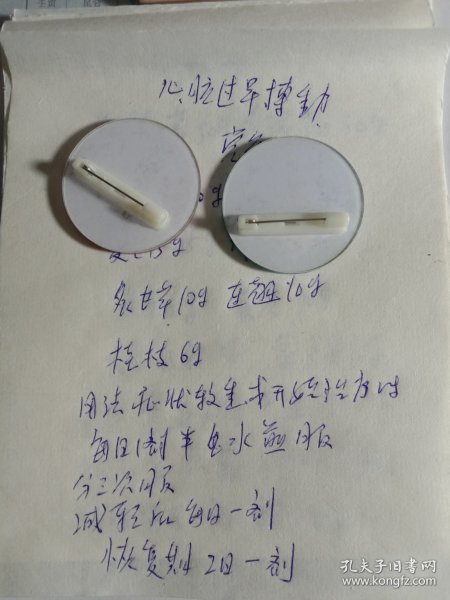 心脏过早搏動
0g
15g
炙甘草10g 连翘10g
桂枝6g
用法 症状较重或开始治疗时
每日1剂半 水煎服
分三次服
减轻后 每日一剂
恢复期 2日一剂
孔夫子旧书网
www.kongfz.com